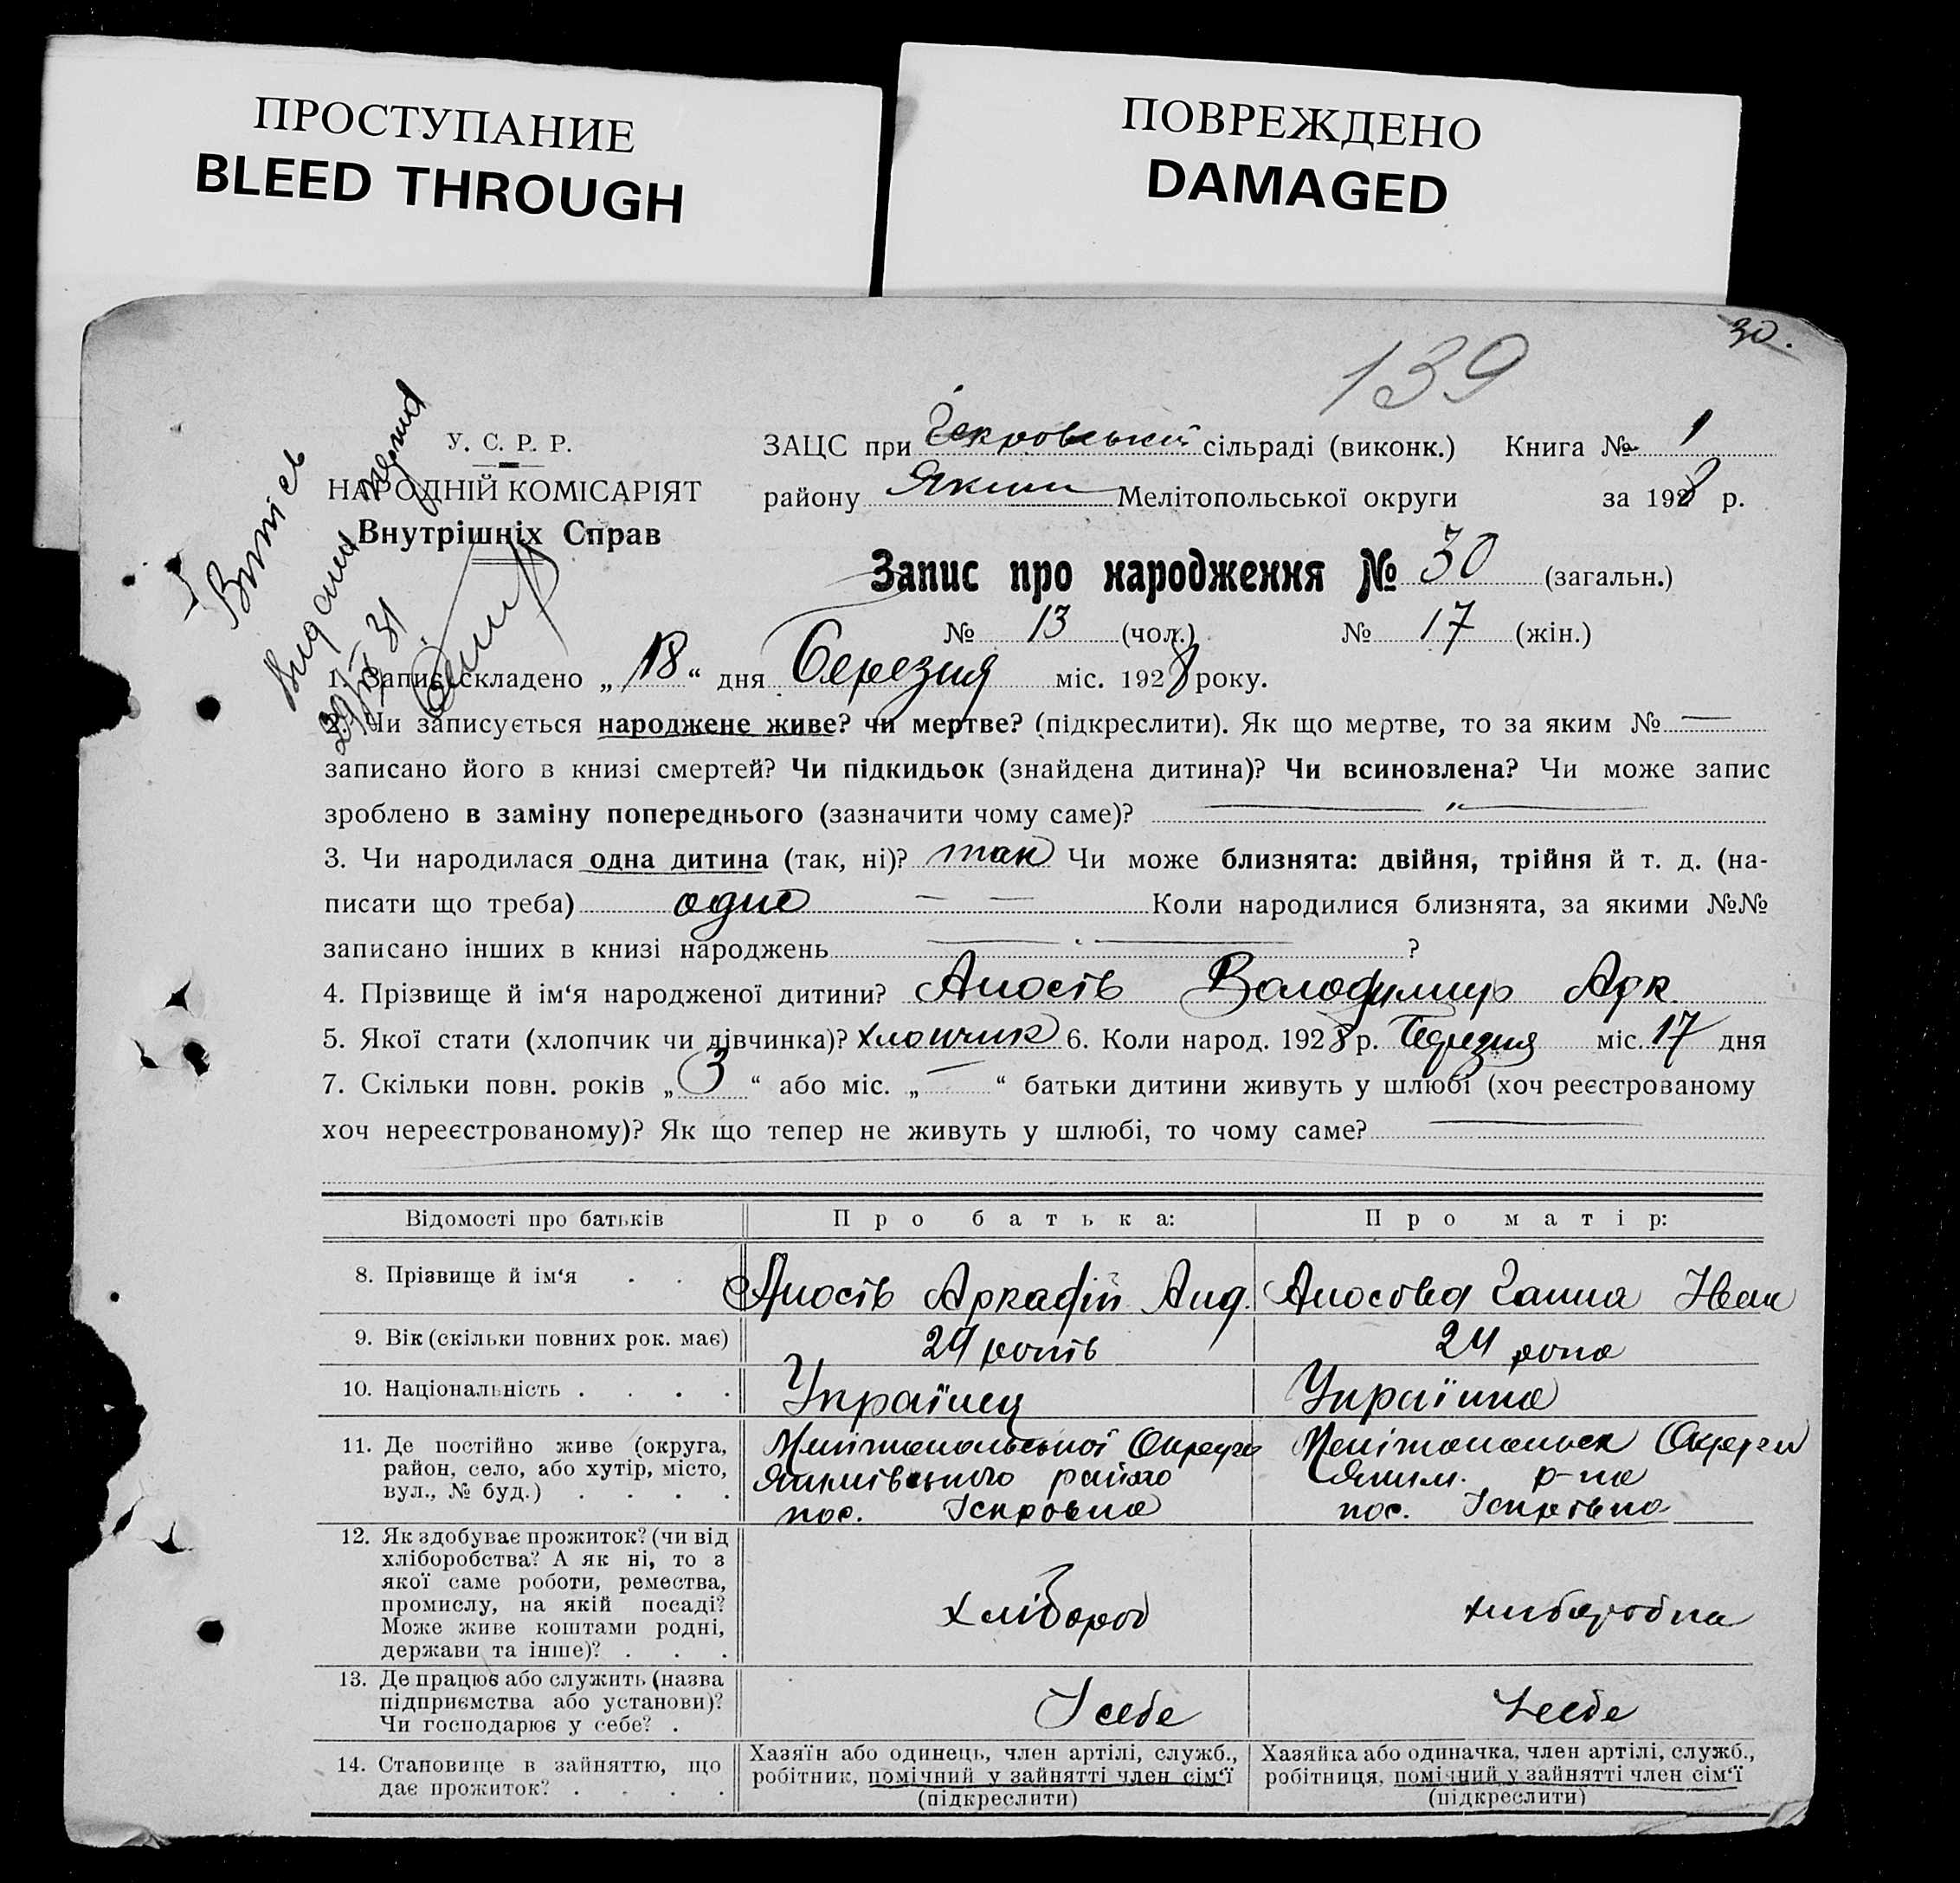 ПРОСТУПАНИЕ
BLEED THROUGH
ПОВРЕЖДЕНО
DAMAGED
30.
139
У. С. Р. Р.
НАРОДНІЙ КОМІСАРІЯТ
Внутрішніх Справ
Витяг
видана
29/IX 31
ЗАЦС при сільраді (виконк.) Книга № 1
району Яким Мелітопольської округи за 1928 р.
Запис про народження № 30 (загальн.)
№ 13 (чол.) № 17 (жін.)
1. Запис складено „18“ дня Березня міс. 1928 року.
2. Чи записується народжене живе? чи мертве? (підкреслити). Як що мертве, то за яким № —
записано його в книзі смертей? Чи підкидьок (знайдена дитина)? Чи всиновлена? Чи може запис
зроблено в заміну попереднього (зазначити чому саме)? — „ —
3. Чи народилася одна дитина (так, ні)? так Чи може близнята: двійня, трійня й т. д. (на-
писати що треба) одно — — Коли народилися близнята, за якими №№
записано інших в книзі народжень — ?
4. Прізвище й ім‘я народженої дитини? Аносів Володимир Арк.
5. Якої стати (хлопчик чи дівчинка)? хлопчик 6. Коли народ. 1928 р. Березня міс. 17 дня
7. Скільки повн. років „3“ або міс. „—“ батьки дитини живуть у шлюбі (хоч реєстрованому
хоч нереєстрованому)? Як що тепер не живуть у шлюбі, то чому саме? —
Відомості про батьків Про батька: Про матір:
8. Прізвище й ім‘я . . Аносів Аркадій Анд. Аносова Ганна Іван
9. Вік (скільки повних рок. має) 24 років 24 рока
10. Національність . . . . Українец Українка
11. Де постійно живе (округа,
район, село, або хутір, місто,
вул., № буд.) . . . .
Мелітопольської Округи
Якимівського району
пос. Іскровка
Мелітопольск Округи
Яким. р-на
пос. Іскрівка
12. Як здобуває прожиток? (чи від
хліборобства? А як ні, то з
якої саме роботи, ремества,
промислу, на якій посаді?
Може живе коштами родні,
держави та інше)? . . .
Хлібороб
хліборобка
13. Де працює або служить (назва
підприємства або установи)?
Чи господарює у себе? .
У себе
У себе
14. Становище в зайняттю, що
дає прожиток? . . . .
Хазяїн або одинець, член артілі, служб.,
робітник, помічний у зайнятті член сім‘ї
(підкреслити)
Хазяйка або одиначка, член артілі, служб.,
робітниця, помічний у зайнятті член сім‘ї
(підкреслити)